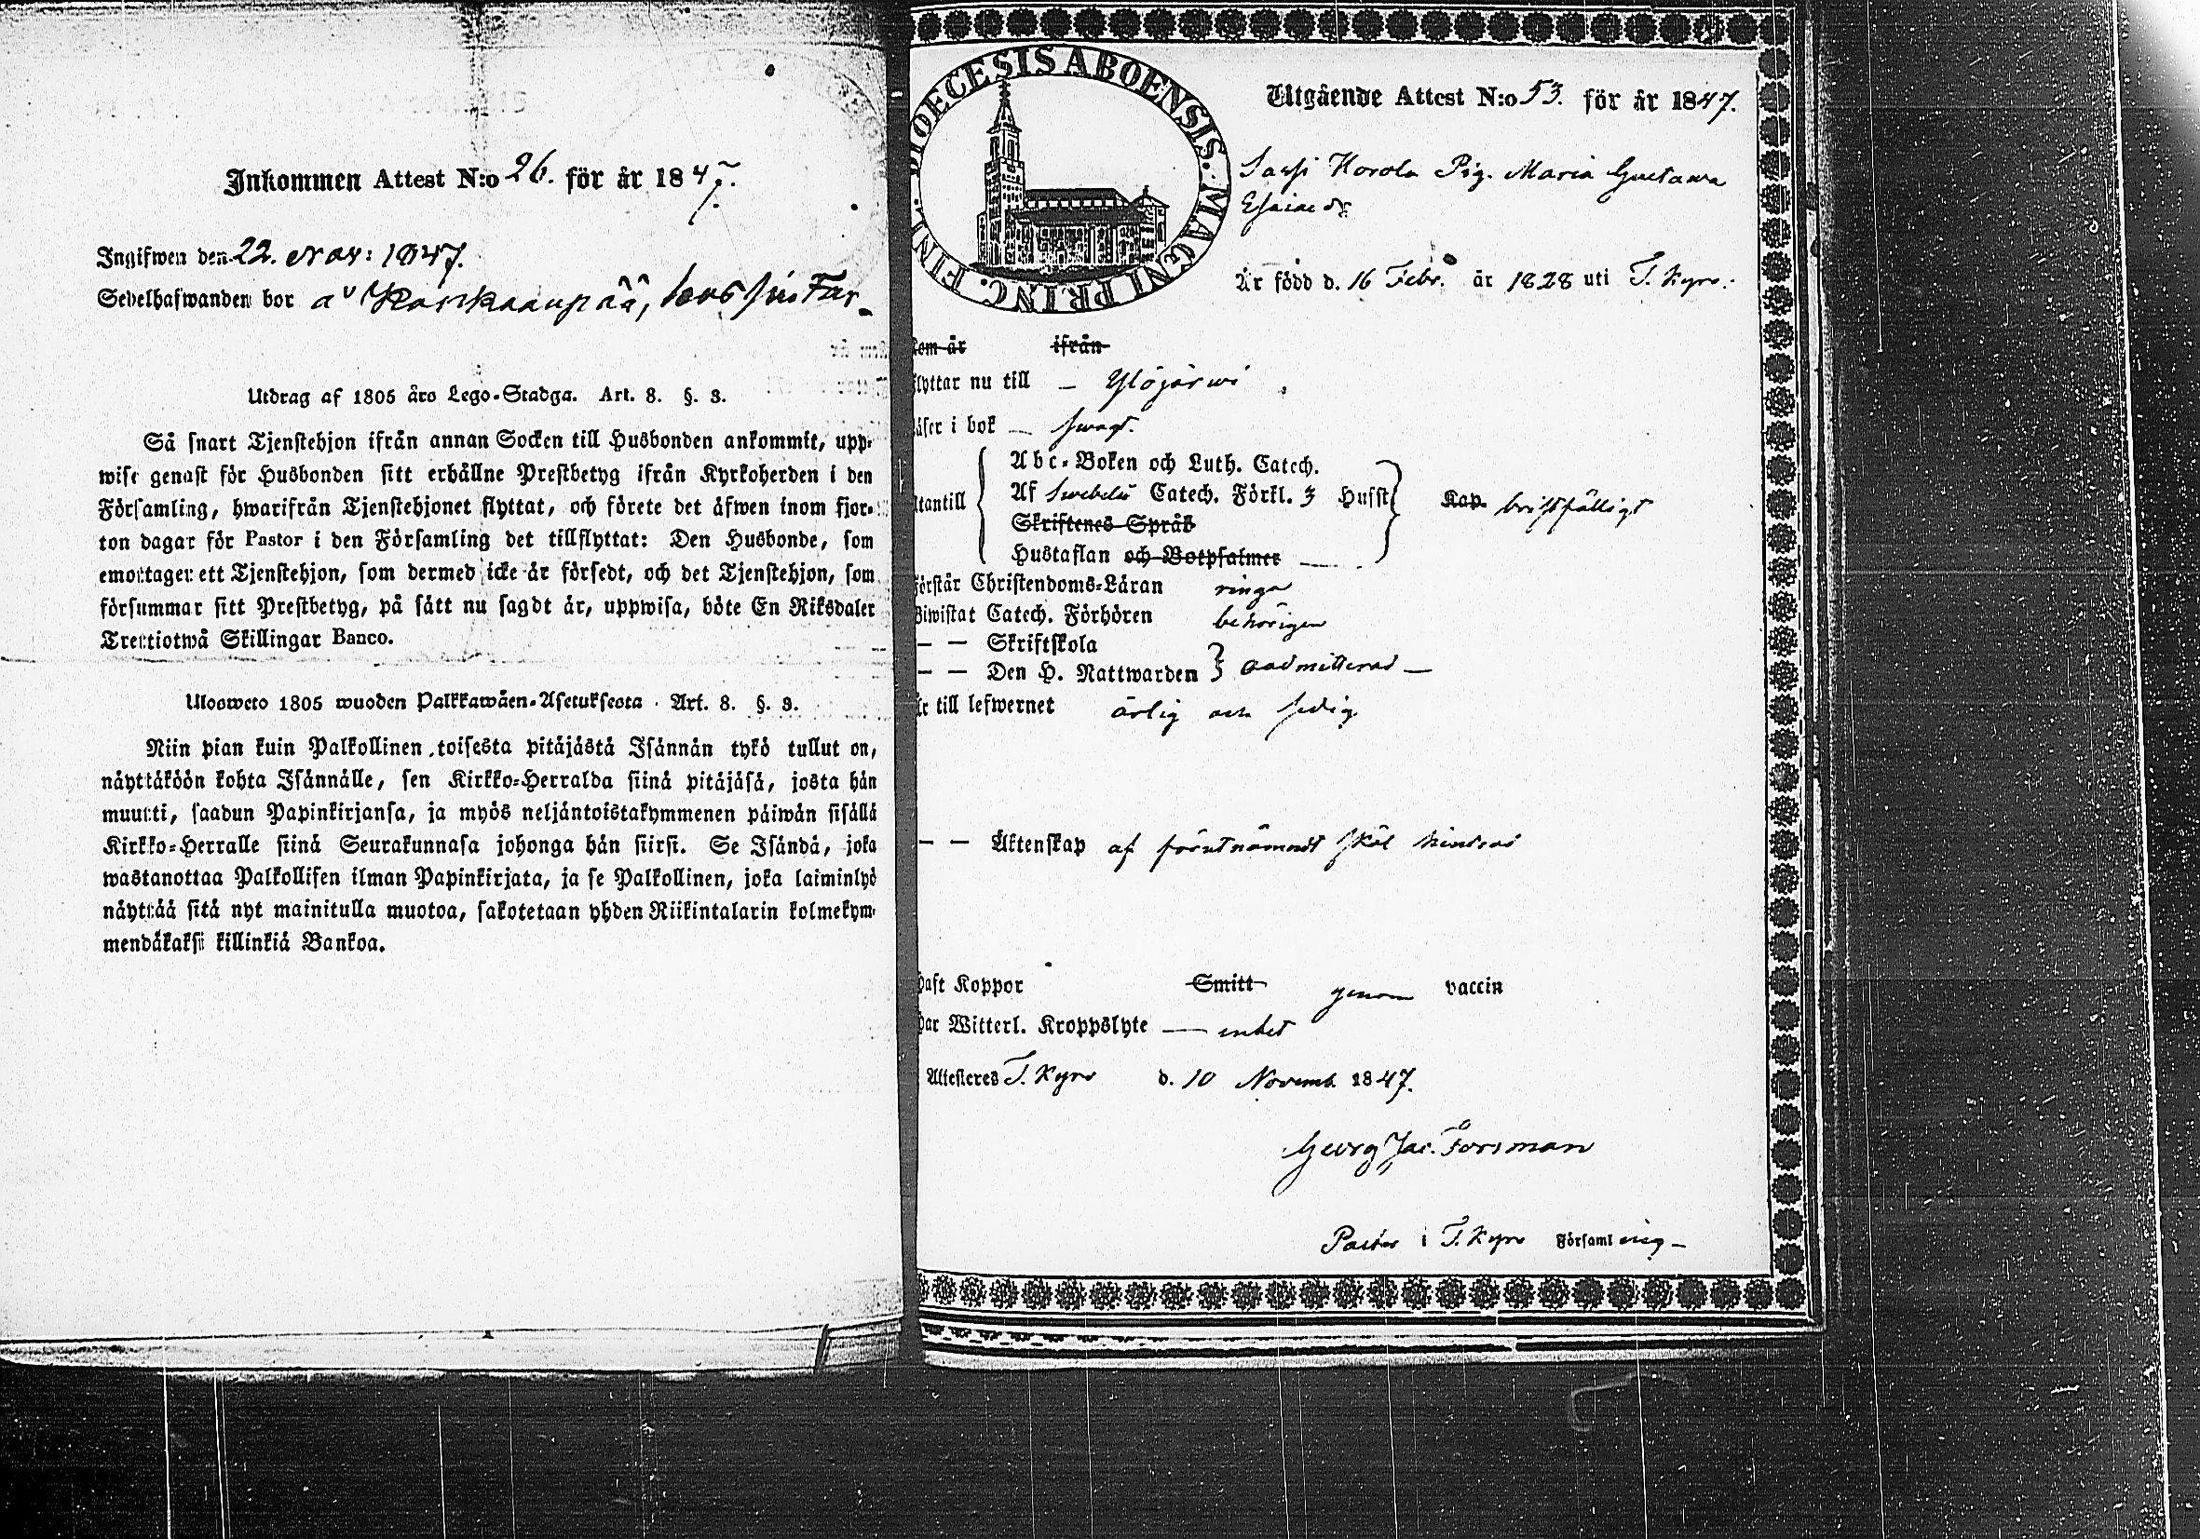 Inkommen Attest N:o 26. för år 1847.
Ingifwen den 22. Nov: 1847.
Sedelhafwanden bor a Karhaanpää, hos sin Far
Utdrag af 1805 års Lego-Stadga. Art. 8. §. 3.
Så snart Tjenstehjon ifrån annan Socken till Husbonden ankommit, upp-
wise genast för Husbonden sitt erhållne Prestbetyg ifrån Kyrkoherden i den
Församling, hwarifrån Tjenstehjonet flyttat, och förete det äfwen inom fjor-
ton dagar för Pastor i den Församling det tillflyttat: Den Husbonde, som
emottager ett Tjenstehjon, som dermed icke är försedt, och det Tjenstehjon, som
försummar sitt Prestbetyg, på sätt nu sagdt är, uppwisa, böte En Riksdaler
Trettiotwå Skillingar Banco.
Ulosweto 1805 wuoden Palkkawäen-Asetuksesta Art. 8. §. 3.
Niin pian kuin Palkollinen toisesta pitäjästä Isännän tykö tullut on,
näyttäköön kohta Isännälle, sen Kirkko-Herralda siinä pitäjäsä, josta hän
muutti, saadun Papinkirjansa, ja myös neljäntoistakymmenen päiwän sisällä
Kirkko-Herralle siinä Seurakunnasa johonga hän siirsi. Se Isändä, joka
wastanottaa Palkollisen ilman Papinkirjata, ja se Palkollinen, joka laiminlyö
näyttää sitä nyt mainitulla muotoa, sakotetaan yhden Riikintalarin kolmekym-
mendäkaksi killinkiä Bankoa.
DIOECESIS ABOENSIS. MAGNI PRINC. FINL.
Utgående Attest N:o 53. för år 1847.
Sassi Korola Pig. Maria Gustawa
Esaiaedr
Är född d. 16 Febr. år 1828 uti T. Kyro.
kom år ifrån
flyttar nu till — Ylöjärwi
läser i bok — swagt.
Abc-Boken och Luth. Catech.
utantill Af Swebelii Catech. Förkl. 3 Hufst. Kap. bristfälligt
Skriftenes Språk
Hustaflan och Botpsalmer
förstår Christendoms-Läran ringa
Biwistat Catech. Förhören behörigen
— — Skriftskola
— — Den H. Nattwarden } admitterad —
Är till lefwernet ärlig och sedig
— — Äktenskap af förutnämndt skäl hindrad
haft Koppor Smitt genom vaccin
har Witterl. Kroppslyte — intet
Attesteres T. Kyro d. 10 Novemb. 1847.
Georg Jac. Forsman
Pastor i T. Kyro Församling —